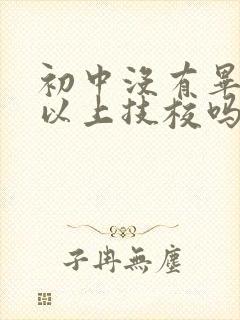 初中没有畢
以上技校吗
子冉無塵